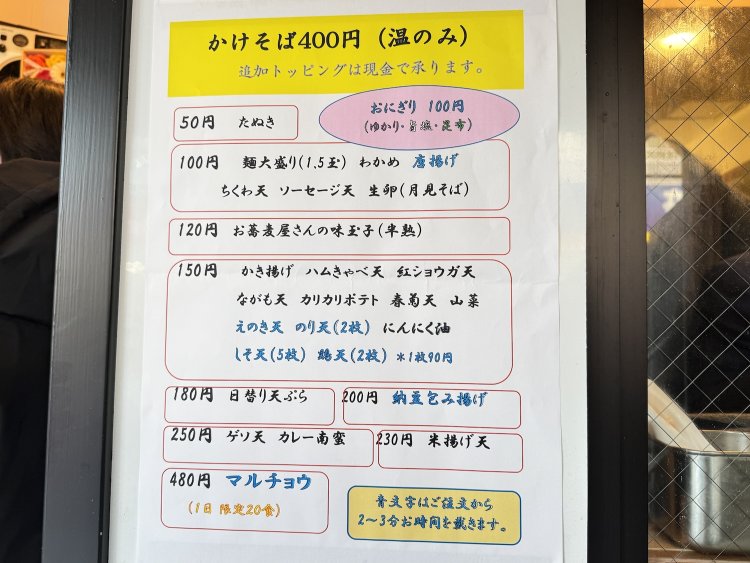 かけそば400円（温のみ）
追加トッピングは現金で承ります。
おにぎり 100円
(ゆかり・旨塩・昆布)
50円 たぬき
100円 麺大盛り(1.5玉) わかめ 唐揚げ
ちくわ天 ソーセージ天 生卵(月見そば)
120円 お蕎麦屋さんの味玉子(半熟)
150円 かき揚げ ハムきゃべ天 紅ショウガ天
ながも天 カリカリポテト 春菊天 山菜
えのき天 のり天(2枚) にんにく油
しそ天(5枚) 鶏天(2枚) *1枚90円
180円 日替り天ぷら
200円 納豆包み揚げ
250円 ゲソ天 カレー南蜜
230円 米揚げ天
480円 マルチョウ
(1日 限定20食)
青文字はご注文から
2～3分お時間を戴きます。